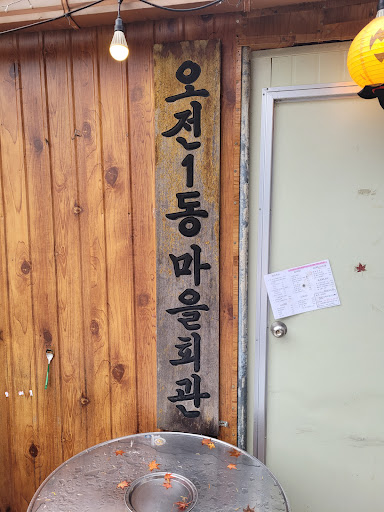 오전1동마을회관